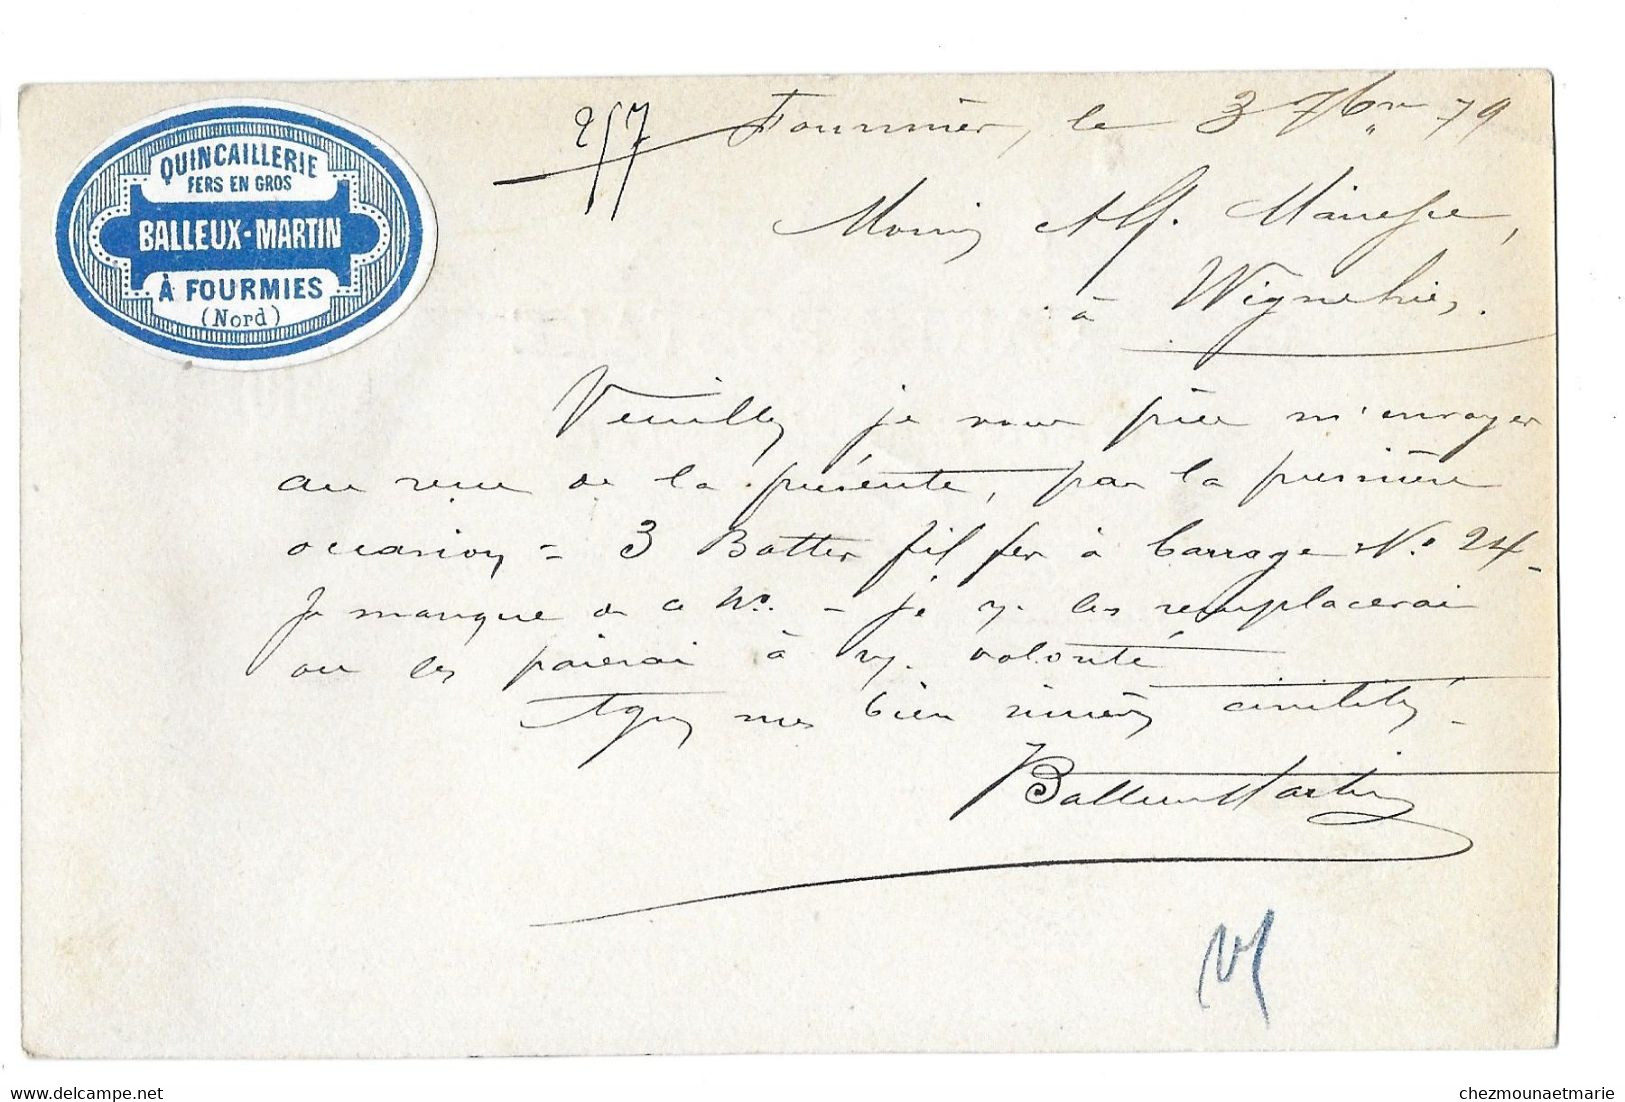 QUINCAILLERIE
FERS EN GROS
BALLEUX-MARTIN
À FOURMIES
(Nord)
257
Fourmies, le 3 7bre 79
Alf.
à Wignehies.
Veuillez je vous prie m'envoyer
au reçu de la présente, par la première
occasion = 3 Bottes fil fer à barrage No 24 -
Je manque de ce No. - je v. les remplacerai
ou les paierai à v. volonté
Agréez mes bien sincères civilités -
Balleux Martin
chezmounaetmarie